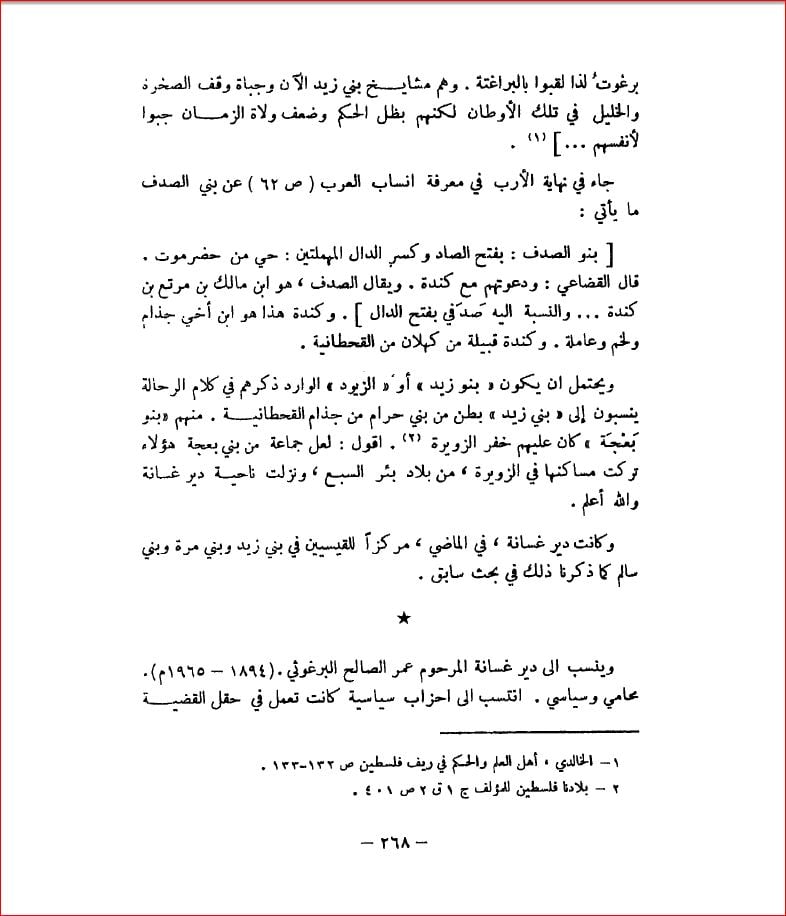 برغوت لذا لقبوا بالبراغتة . وهم مشايخ بني زيد الآن وجباة وقف الصخرة
والخليل في تلك الأوطان لكنهم بظل الحكم وضعف ولاة الزمان جبوا
لأنفسهم ... ] (١) .
جاء في نهاية الأرب في معرفة انساب العرب ( ص ٦٢ ) عن بني الصدف
ما يأتي :
[ بنو الصدف : بفتح الصاد وكسر الدال المهملتين : حي من حضرموت .
قال القضاعي : ودعوتهم مع كندة . ويقال الصدف ، هو ابن مالك بن مرتع بن
كندة ... والنسبة اليه صَدَفي بفتح الدال ] . وكندة هذا هو ابن أخي جذام
ولخم وعاملة . وكندة قبيلة من كهلان من القحطانية .
ويحتمل ان يكون « بنو زيد » أو « الزيود » الوارد ذكرهم في كلام الرحالة
ينسبون إلى « بني زيد » بطن من بني حرام من جذام القحطانية . منهم «بنو
بَعْجَة » كان عليهم خفر الزويرة (٢) . اقول : لعل جماعة من بني بعجة هؤلاء
تركت مساكنها في الزويرة ، من بلاد بئر السبع ، ونزلت ناحية دير غسانة
والله أعلم .
وكانت دير غسانة ، في الماضي ، مركزاً للقيسيين في بني زيد وبني مرة وبني
سالم كما ذكرنا ذلك في بحث سابق .
★
وينسب الى دير غسانة المرحوم عمر الصالح البرغوثي . (١٨٩٤ – ١٩٦٥م).
محامي وسياسي . انتسب الى احزاب سياسية كانت تعمل في حقل القضية
١– الخالدي ، أهل العلم والحكم في ريف فلسطين ص ١٣٢-١٣٣ .
٢ – بلادنا فلسطين للمؤلف ج ١ ق ٢ ص ٤٠١ .
– ٢٦٨ –